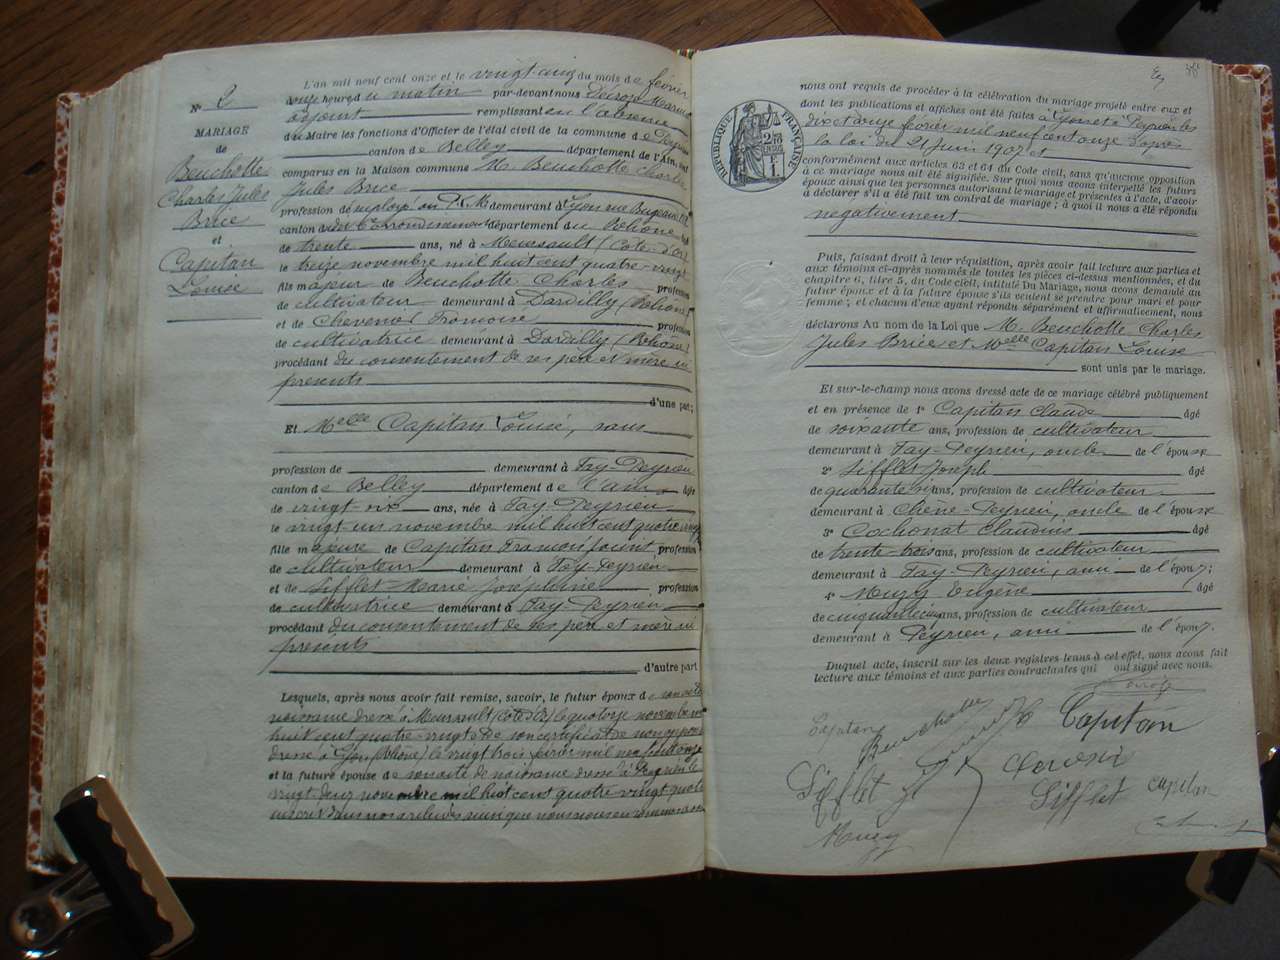 N° 2
MARIAGE
de
Beuchotte
Charles Jules
Brice
et
Capitan
Louise
L'an mil neuf cent onze et le vingt-cinq du mois de février
heures du matin par-devant nous
adjoint remplissant en l'absence
du Maire les fonctions d'Officier de l'état civil de la commune de Peyrieu
canton de Belley département de l'Ain, sont
comparus en la Maison commune M. Beuchotte Charles
Jules Brice
profession d'employé au P.L.M demeurant à Lyon rue Bugeaud
canton du arrondissement département du Rhône âgé
de trente ans, né à Meursault (Côte-d'Or)
le treize novembre mil huit cent quatre-vingt
fils majeur de Beuchotte Charles profession
de cultivateur demeurant à Dardilly (Rhône)
et de Françoise profession
de cultivatrice demeurant à Dardilly (Rhône)
procédant du consentement de ses père et mère ici
présents
d'une part;
Et Melle Capitan Louise, sans
profession de demeurant à Fay-Peyrieu
canton de Belley département de l'Ain âgée
de vingt- ans, née à Fay-Peyrieu
le vingt un novembre mil huit cent quatre vingt
fille majeure de Capitan François profession
de cultivateur demeurant à Fay-Peyrieu
et de Sifflet Marie Joséphine profession
de cultivatrice demeurant à Fay-Peyrieu
procédant du consentement de ses père et mère ici
présents
d'autre part
Lesquels, après nous avoir fait remise, savoir, le futur époux de son acte de
naissance dressé à Meursault (Côte d'Or) le quatorze novembre mil
huit cent quatre-vingt & de son certificat de non
dressé à Lyon (Rhône) le vingt trois février mil neuf cent onze
et la future épouse de son acte de naissance dressé à Peyrieu le
vingt-deux novembre mil huit cent quatre vingt
inscrit dans nos archives
RÉPUBLIQUE FRANÇAISE
nous ont requis de procéder à la célébration du mariage projeté entre eux et
dont les publications et affiches ont été faites à Lyon et à Peyrieu les
dix et février mil neuf cent onze d'après
la loi du 21 juin 1907 et
conformément aux articles 63 et 64 du Code civil, sans qu'aucune opposition
à ce mariage nous ait été signifiée. Sur quoi nous avons interpellé les futurs
époux ainsi que les personnes autorisant le mariage et présentes à l'acte, d'avoir
à déclarer s'il a été fait un contrat de mariage; à quoi il nous a été répondu
négativement
Puis, faisant droit à leur réquisition, après avoir fait lecture aux parties et
aux témoins ci-après nommés de toutes les pièces ci-dessus mentionnées, et du
chapitre 6, titre 5, du Code civil, intitulé Du Mariage, nous avons demandé au
futur époux et à la future épouse s'ils veulent se prendre pour mari et pour
femme; et chacun d'eux ayant répondu séparément et affirmativement, nous
déclarons Au nom de la Loi que M. Beuchotte Charles
Jules Brice et Melle Capitan Louise
sont unis par le mariage.
Et sur-le-champ nous avons dressé acte de ce mariage célébré publiquement
et en présence de 1° Capitan Claude âgé
de soixante ans, profession de cultivateur
demeurant à Fay-Peyrieu, oncle de l'épouse
2° Sifflet Joseph âgé
de quarante ans, profession de cultivateur
demeurant à Chêne-Peyrieu, oncle de l'épouse
3° Cochonat Claudius âgé
de trente-trois ans, profession de cultivateur
demeurant à Fay-Peyrieu, ami de l'épou
4° Eugène âgé
de cinquante cinq ans, profession de cultivateur
demeurant à Peyrieu, ami de l'épou
Duquel acte, inscrit sur les deux registres tenus à cet effet, nous avons fait
lecture aux témoins et aux parties contractantes qui ont signé avec nous.
Capitan Beuchotte Capitan
Sifflet Sifflet capitan